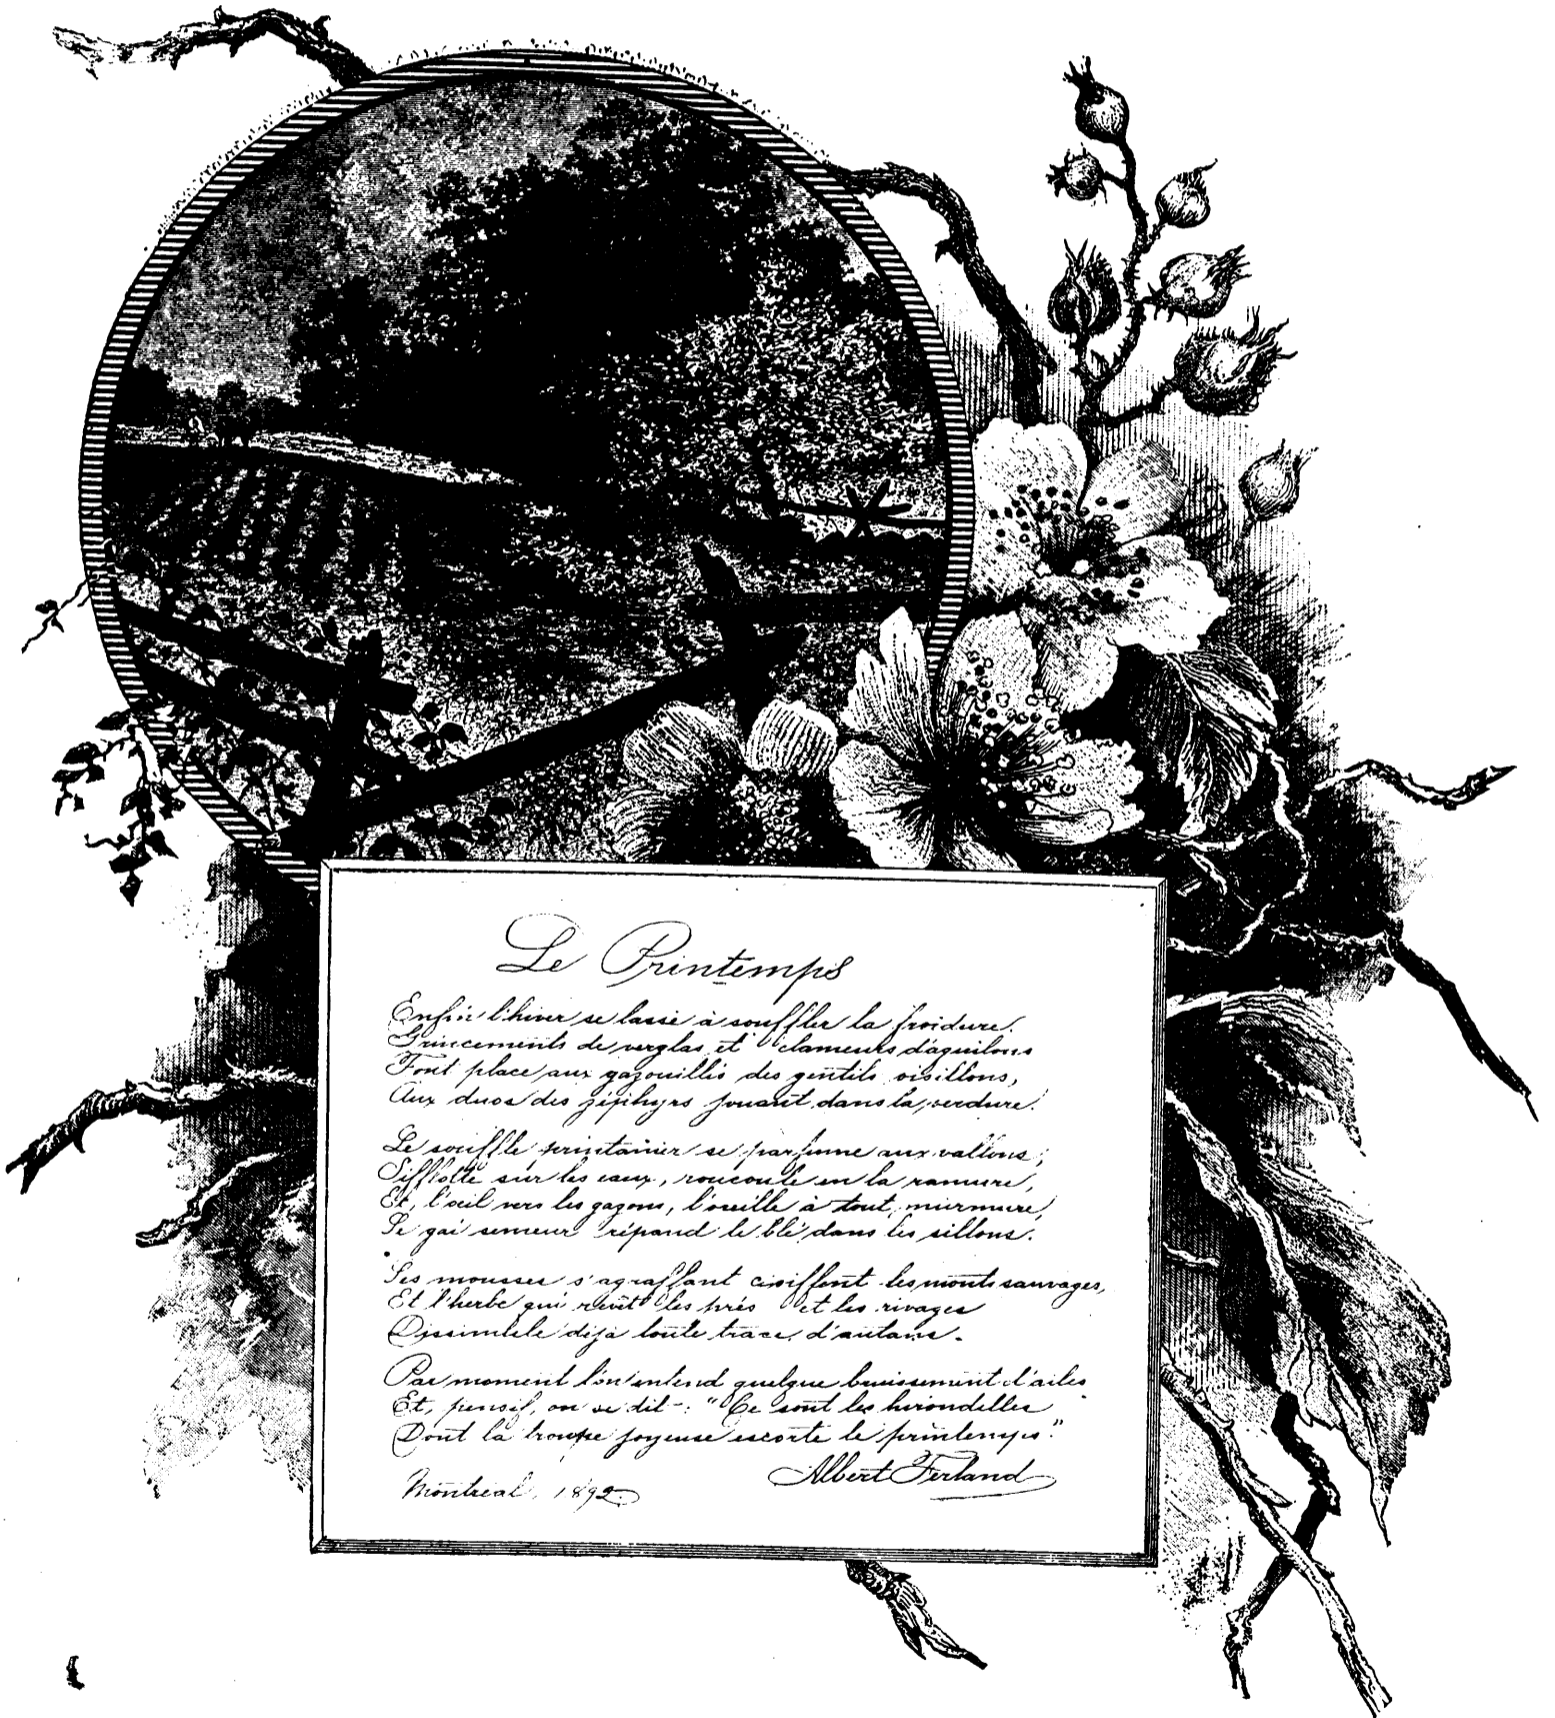 Le Printemps
Enfin l'hiver se lasse à souffler la froidure.
Grincements de verglas et clameurs d'aquilons
Font place aux gazouillis des gentils oisillons,
Aux duos des zéphyrs jouant dans la verdure.
Le souffle printanier se parfume aux vallons,
Sifflotte sur les eaux, roucoule en la ramure,
Et, l'œil vers les gazons, l'oreille à tout murmure,
Le gai semeur répand le blé dans les sillons.
Les mousses s'agraffant coiffent les monts sauvages,
Et l'herbe qui revêt les prés et les rivages
Dissimule déjà toute trace d'autans.
Par moment l'on entend quelque bruissement d'ailes
Et, pensif, on se dit : "Ce sont les hirondelles
Dont la troupe joyeuse escorte le printemps."
Albert Ferland
Montréal, 1892.